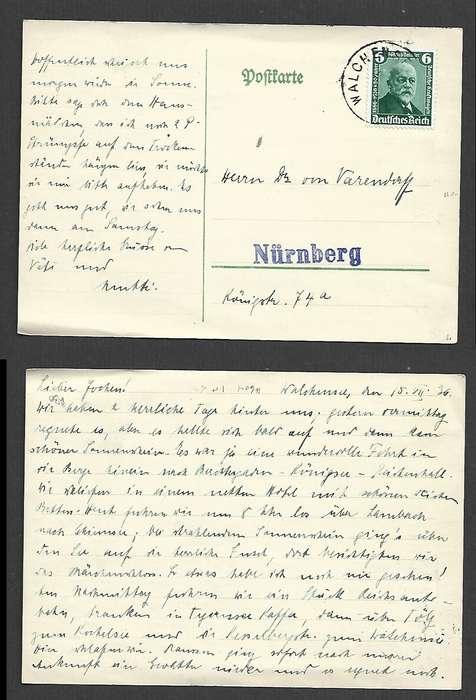 Hoffentlich weicht uns
morgen wieder die Sonne.
Bitte sage doch den Haus-
mädchen, dass ich noch 2 P.
Strümpfe auf dem Trocken-
ständer hängen ließ, sie möchte
sie mir bitte aufheben. Es
geht uns gut, wir sehen uns
dann am Samstag.
Viele herzliche Grüsse von
Vati und
Mutti.
Postkarte
WALCHEN
6 6
Deutsches Reich
Herrn Dr von Varendorff
Nürnberg
Königstr. 74a
Lieber Jochen! Walchensee, den 15. VII 36.
Wir haben 2 herrliche Tage hinter uns, gestern vormittag
regnete es, aber es hellte sich bald auf und dann kam
schöner Sonnenschein. Es war ja eine wundervolle Fahrt in
die Berge hinein nach Berchtesgaden - Königssee - Reichenhall.
Wir schliefen in einem netten Hotel mit schönen
Betten. Heut fuhren wir um 8 Uhr los über
nach Chiemsee; bei strahlendem Sonnenschein ging's über
den See auf die herrliche Insel, dort besichtigten wir
das Märchenschloss. So etwas habe ich noch nie gesehen!
Am Nachmittag fuhren wir ein Stück Reichsauto-
bahn, tranken in Tegernsee Kaffee, dann über Tölz
zum Kochelsee und die Kesselbergstr. zum Walchensee
wo schlafen wir. Draussen ging sofort nach unsrer
Ankunft ein Gewitter nieder und es regnet noch.